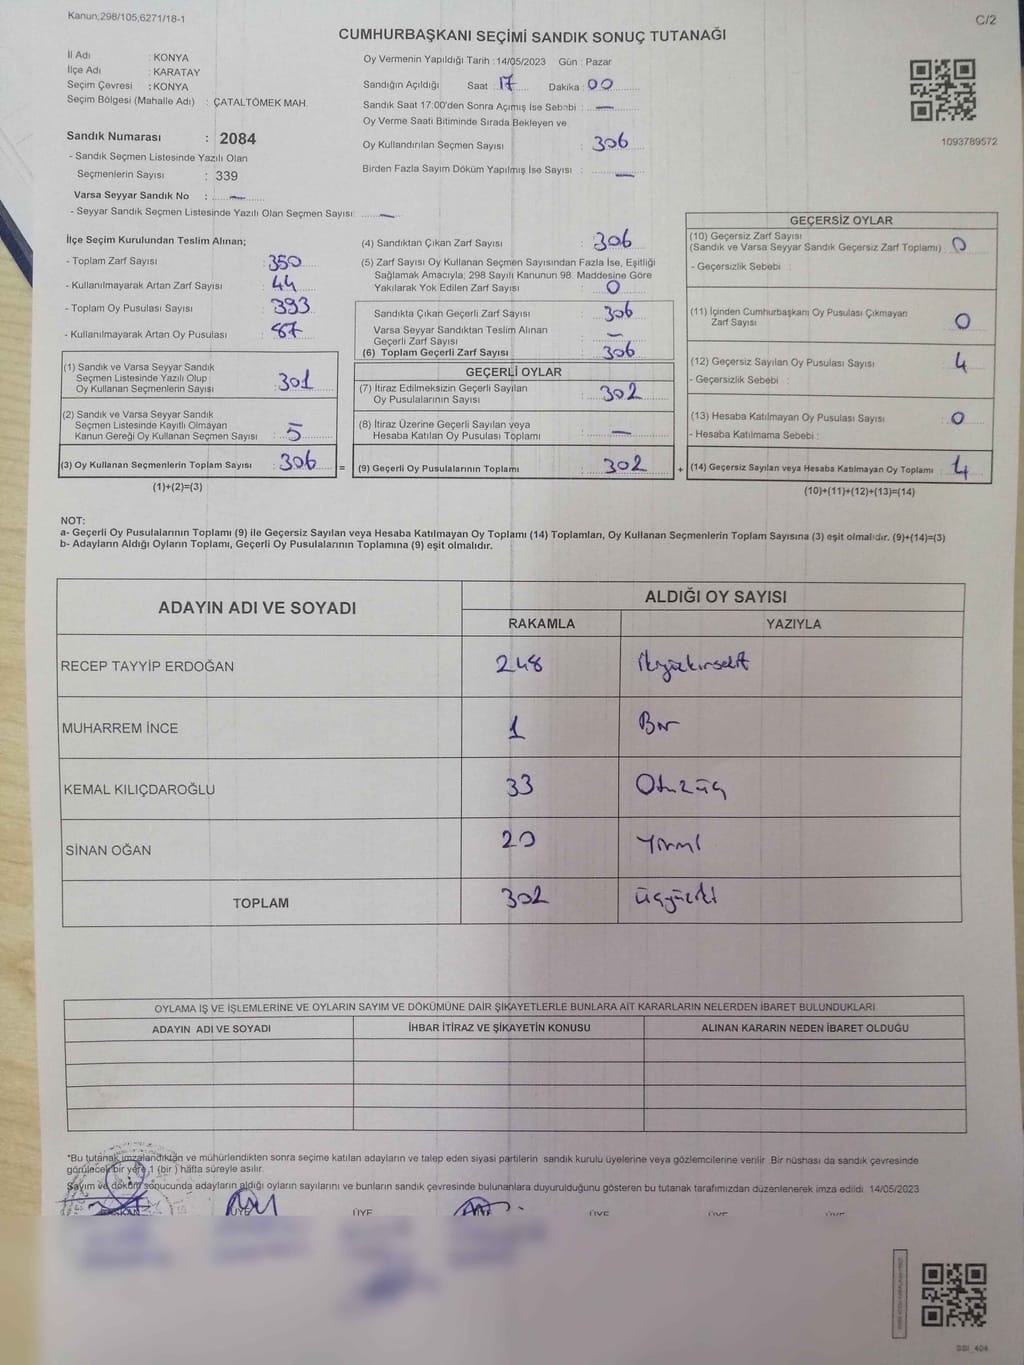 Kanun;298/105,6271/18-1
C/2
CUMHURBAŞKANI SEÇİMİ SANDIK SONUÇ TUTANAĞI
İl Adı : KONYA
İlçe Adı : KARATAY
Seçim Çevresi : KONYA
Seçim Bölgesi (Mahalle Adı) : ÇATALTÖMEK MAH.
Sandık Numarası : 2084
- Sandık Seçmen Listesinde Yazılı Olan
Seçmenlerin Sayısı : 339
Varsa Seyyar Sandık No : —
- Seyyar Sandık Seçmen Listesinde Yazılı Olan Seçmen Sayısı: —
Oy Vermenin Yapıldığı Tarih : 14/05/2023 Gün : Pazar
Sandığın Açıldığı Saat : 17 Dakika : 00
Sandık Saat 17:00'den Sonra Açımış İse Sebebi : —
Oy Verme Saati Bitiminde Sırada Bekleyen ve
Oy Kullandırılan Seçmen Sayısı : 306
Birden Fazla Sayım Döküm Yapılmış İse Sayısı : —
1093789572
İlçe Seçim Kurulundan Teslim Alınan;
- Toplam Zarf Sayısı : 350
- Kullanılmayarak Artan Zarf Sayısı : 44
- Toplam Oy Pusulası Sayısı : 393
- Kullanılmayarak Artan Oy Pusulası : 87
(1) Sandık ve Varsa Seyyar Sandık
Seçmen Listesinde Yazılı Olup
Oy Kullanan Seçmenlerin Sayısı : 301
(2) Sandık ve Varsa Seyyar Sandık
Seçmen Listesinde Kayıtlı Olmayan
Kanun Gereği Oy Kullanan Seçmen Sayısı : 5
(3) Oy Kullanan Seçmenlerin Toplam Sayısı : 306 =
(1)+(2)=(3)
(4) Sandıktan Çıkan Zarf Sayısı : 306
(5) Zarf Sayısı Oy Kullanan Seçmen Sayısından Fazla İse, Eşitliği
Sağlamak Amacıyla; 298 Sayılı Kanunun 98. Maddesine Göre
Yakılarak Yok Edilen Zarf Sayısı : 0
Sandıkta Çıkan Geçerli Zarf Sayısı : 306
Varsa Seyyar Sandıktan Teslim Alınan
Geçerli Zarf Sayısı : —
(6) Toplam Geçerli Zarf Sayısı : 306
GEÇERLİ OYLAR
(7) İtiraz Edilmeksizin Geçerli Sayılan
Oy Pusulalarının Sayısı : 302
(8) İtiraz Üzerine Geçerli Sayılan veya
Hesaba Katılan Oy Pusulası Toplamı : —
(9) Geçerli Oy Pusulalarının Toplamı : 302 +
GEÇERSİZ OYLAR
(10) Geçersiz Zarf Sayısı
(Sandık ve Varsa Seyyar Sandık Geçersiz Zarf Toplamı) : 0
- Geçersizlik Sebebi :
(11) İçinden Cumhurbaşkanı Oy Pusulası Çıkmayan
Zarf Sayısı : 0
(12) Geçersiz Sayılan Oy Pusulası Sayısı : 4
- Geçersizlik Sebebi :
(13) Hesaba Katılmayan Oy Pusulası Sayısı : 0
- Hesaba Katılmama Sebebi :
(14) Geçersiz Sayılan veya Hesaba Katılmayan Oy Toplamı : 4
(10)+(11)+(12)+(13)=(14)
NOT:
a- Geçerli Oy Pusulalarının Toplamı (9) ile Geçersiz Sayılan veya Hesaba Katılmayan Oy Toplamı (14) Toplamları, Oy Kullanan Seçmenlerin Toplam Sayısına (3) eşit olmalıdır. (9)+(14)=(3)
b- Adayların Aldığı Oyların Toplamı, Geçerli Oy Pusulalarının Toplamına (9) eşit olmalıdır.
ADAYIN ADI VE SOYADI
ALDIĞI OY SAYISI
RAKAMLA YAZIYLA
RECEP TAYYİP ERDOĞAN 248 İkiyüzkırksekiz
MUHARREM İNCE 1 Bir
KEMAL KILIÇDAROĞLU 33 Otuzüç
SİNAN OĞAN 20 Yirmi
TOPLAM 302 Üçyüziki
OYLAMA İŞ VE İŞLEMLERİNE VE OYLARIN SAYIM VE DÖKÜMÜNE DAİR ŞİKAYETLERLE BUNLARA AİT KARARLARIN NELERDEN İBARET BULUNDUKLARI
ADAYIN ADI VE SOYADI İHBAR İTİRAZ VE ŞİKAYETİN KONUSU ALINAN KARARIN NEDEN İBARET OLDUĞU
*Bu tutanak imzalandıktan ve mühürlendikten sonra seçime katılan adayların ve talep eden siyasi partilerin sandık kurulu üyelerine veya gözlemcilerine verilir. Bir nüshası da sandık çevresinde
görülecek bir yere 1 (bir ) hafta süreyle asılır.
Sayım ve döküm sonucunda adayların aldığı oyların sayılarını ve bunların sandık çevresinde bulunanlara duyurulduğunu gösteren bu tutanak tarafımızdan düzenlenerek imza edildi. 14/05/2023
BAŞKAN ÜYE ÜYE ÜYE ÜYE ÜYE ÜYE
SSI_404